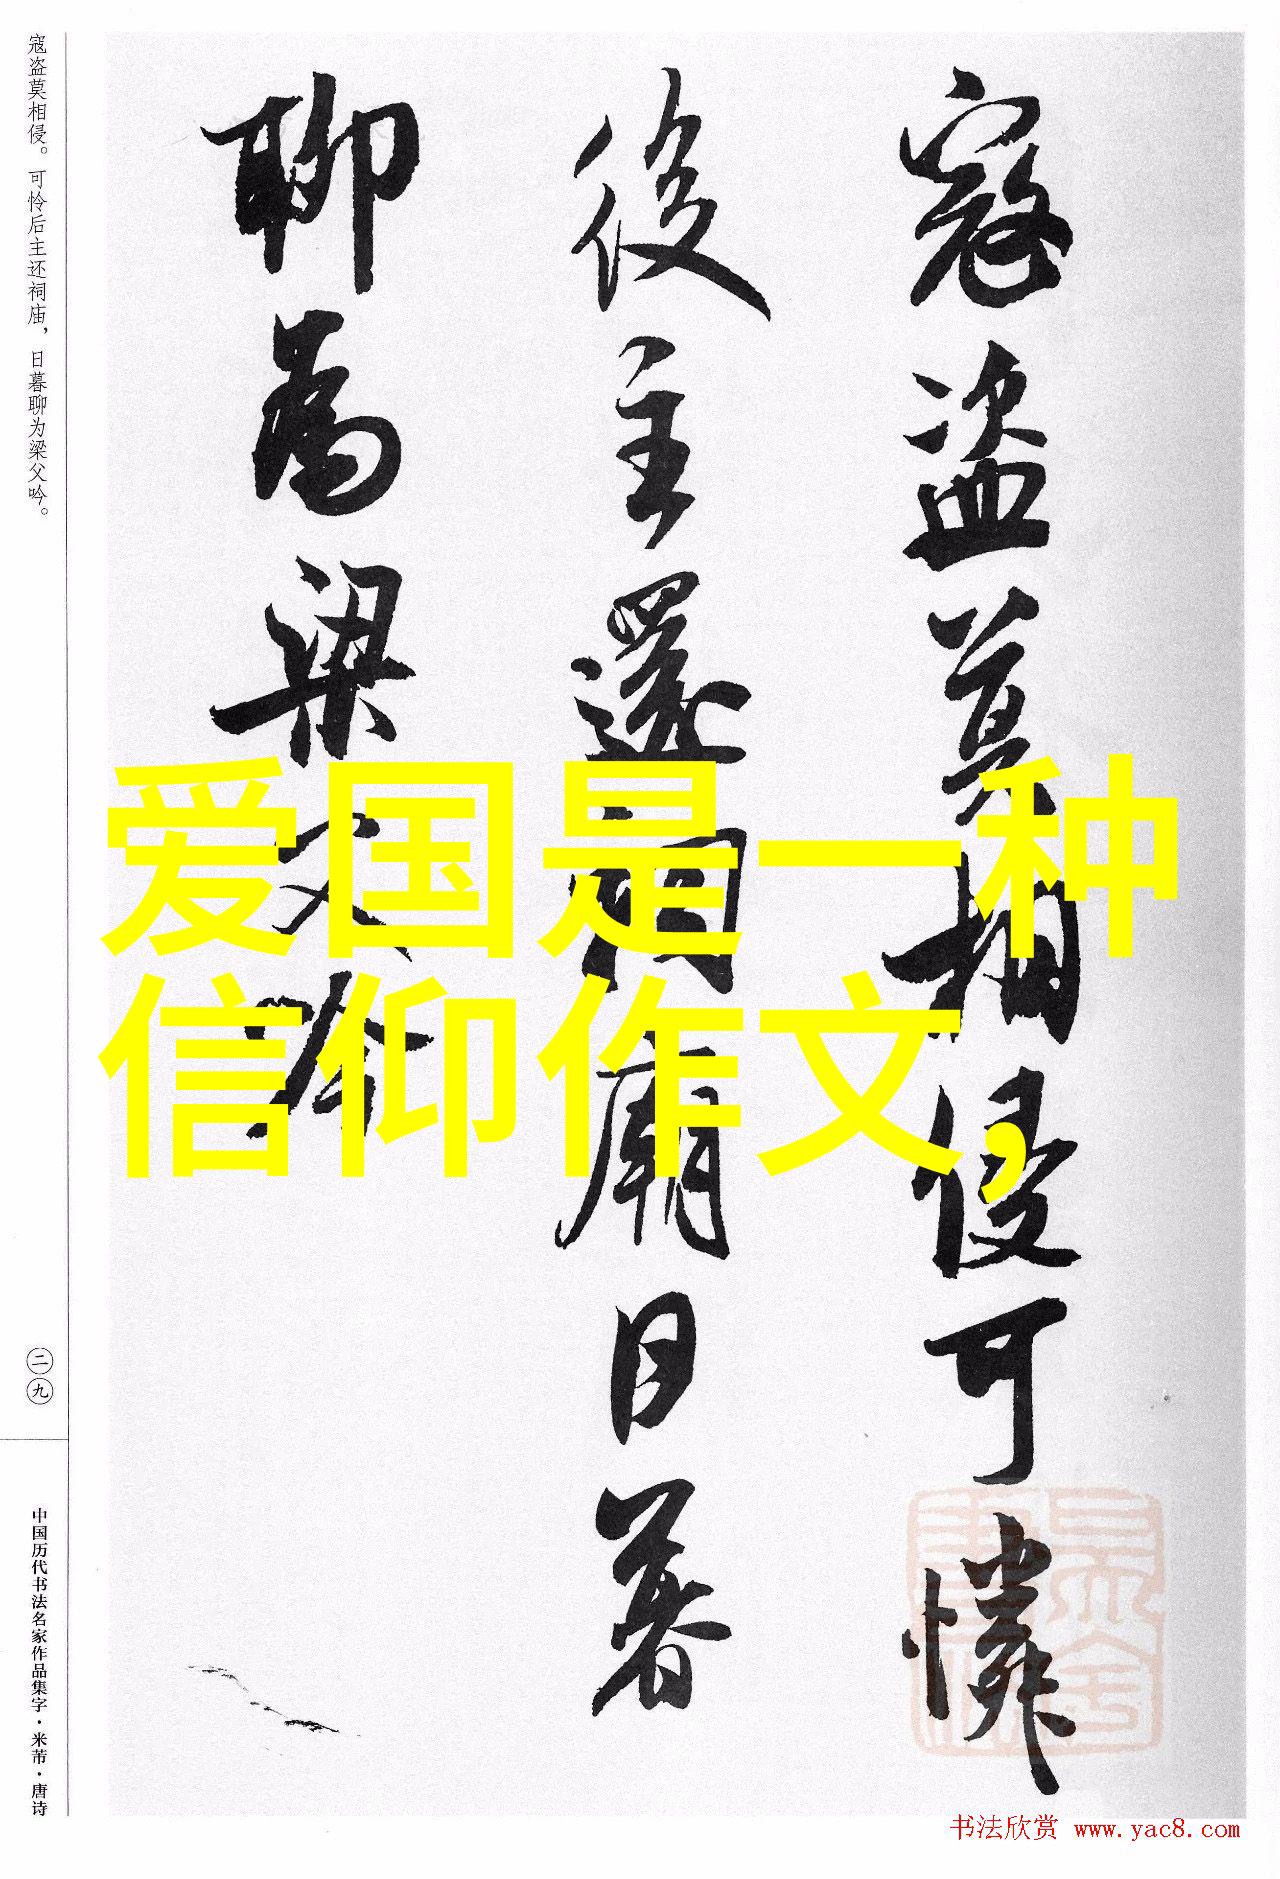 寇盗莫相侵。可怜后主还祠庙，日暮聊为梁父吟。
寇盜莫相侵可憐
後主還祠廟日暮
聊為梁父吟
爱国是一种
信仰作文，
二九
中国历代书法名家作品集字·米芾·唐诗
书法欣赏 www.yac8.com